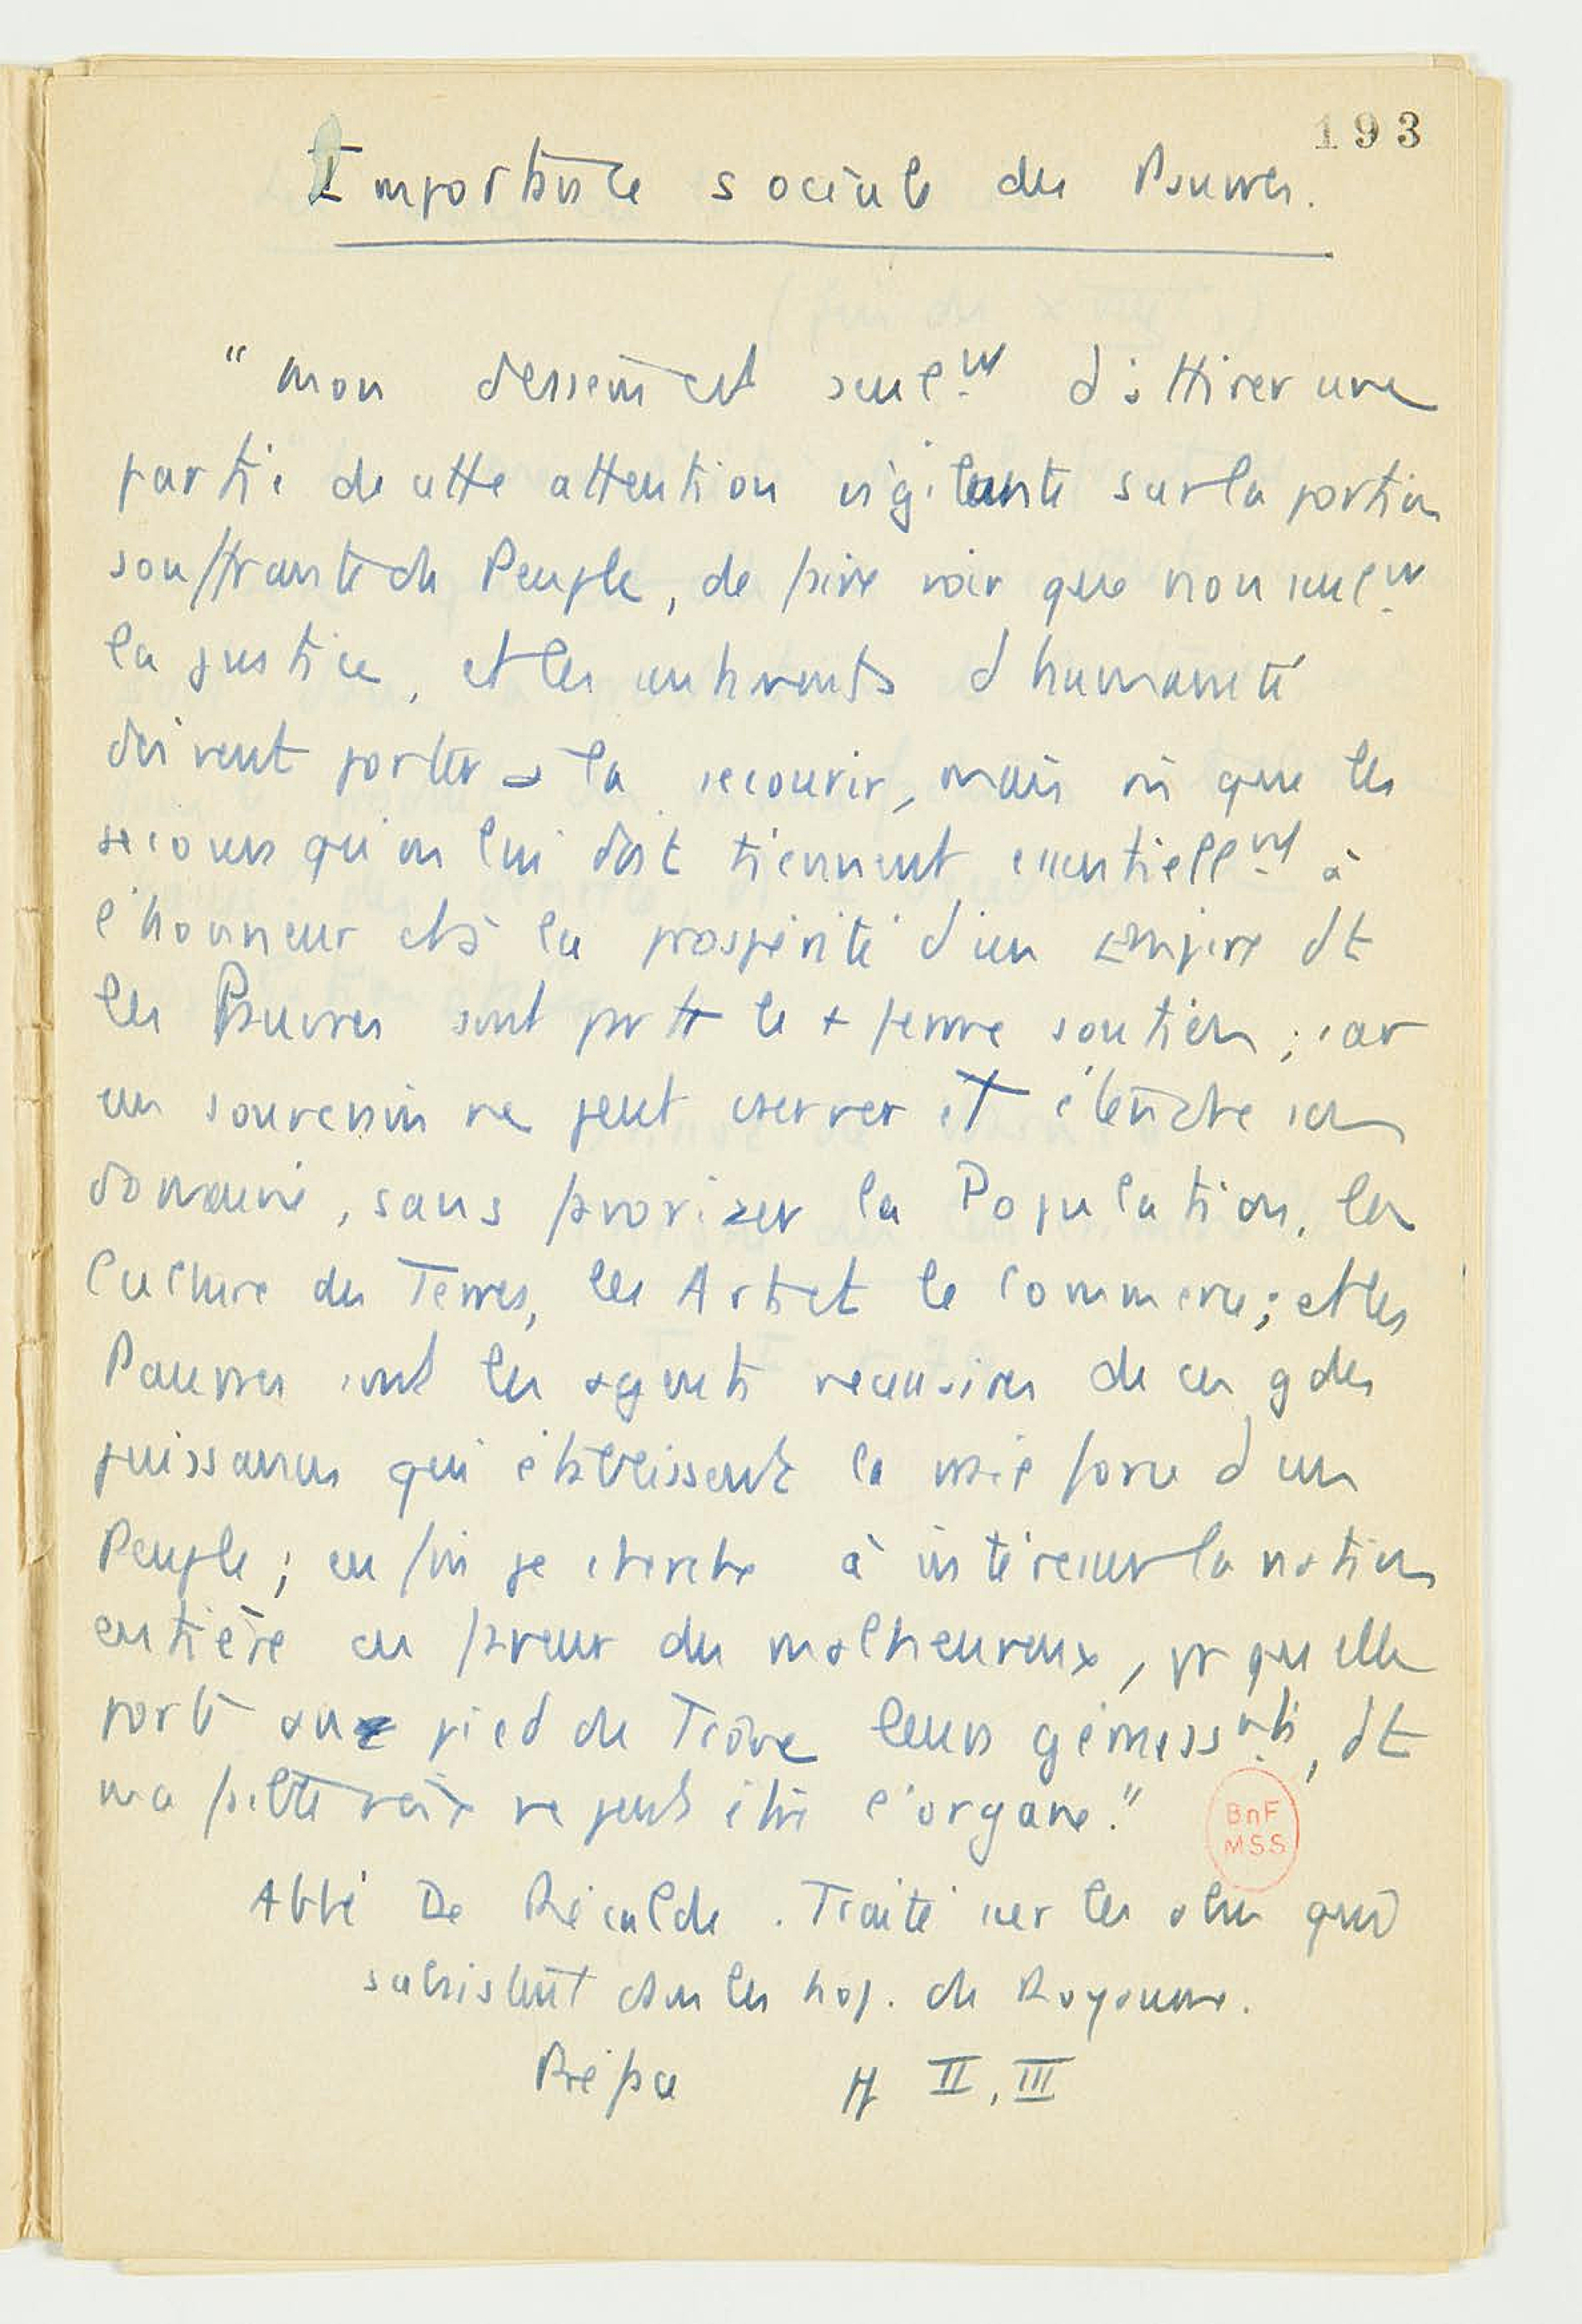 193
Importance sociale des Pauvres.
"Mon dessein est seulmt d'attirer une
partie de cette attention vigilante sur la portion
souffrante du Peuple, de faire voir que non seulmt
la justice, et les sentiments d'humanité
doivent porter à la secourir, mais que les
secours qu'on lui doit tiennent essentiellmt à
l'honneur et à la prospérité d'un Empire dt
les Pauvres sont prtt le + ferme soutien ; car
un souverain ne peut cserver et étendre son
domaine, sans favoriser la Population, la
Culture des Terres, les Arts et le Commerce ; et les
Pauvres sont les agents nécessaires de ces gdes
puissances qui établissent la vraie force d'un
Peuple ; enfin je cherche à intéresser la nation
entière en faveur des malheureux, pr qu'elle
porte au pied du Trône leurs gémissmts, dt
ma faible voix ne peut être l'organe."
Abbé De Récalde. Traité sur les abus qui
subsistent dans les hop. du Royaume.
Préface pp II, III
BnF
MSS